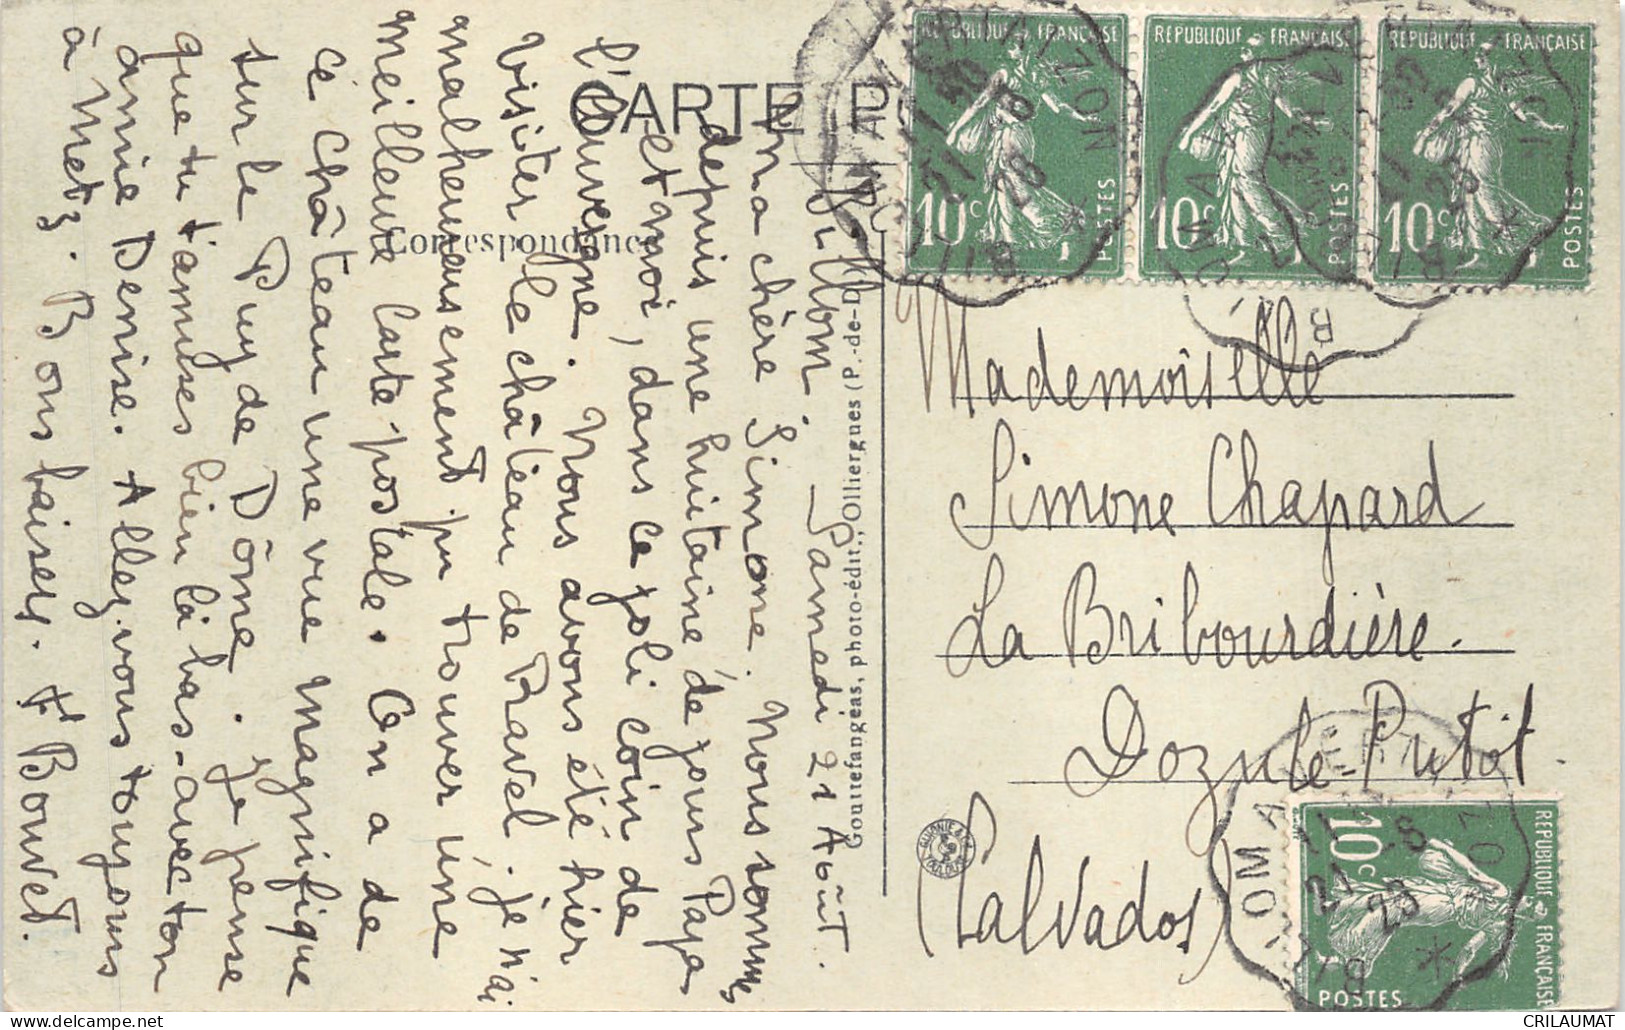 CARTE P
Correspondance
Billom. Samedi 21 Août.
Ma chère Simone. Nous sommes
depuis une huitaine de jours Papa
et moi, dans ce joli coin de
l'Auvergne. Nous avons été hier
visiter le château de Ravel. je n'ai
malheureusement pu trouver une
meilleure carte postale. On a de
ce château une vue magnifique
sur le Puy de Dôme. je pense
que tu t'amuses bien là-bas avec ton
amie Denise. Allez vous toujours
à Metz. Bons baisers. F Bouvet.
Gouttefangeas, photo-édit., Olliergues (P.-de-D
REPUBLIQUE FRANÇAISE
10c
POSTES
REPUBLIQUE FRANÇAISE
10c
POSTES
REPUBLIQUE FRANÇAISE
10c
POSTES
Mademoiselle
Simone Chapard
La Bribourdière.
Dozulé-Putot.
(Calvados)
REPUBLIQUE FRANÇAISE
10c
POSTES
21 -8
CRILAUMAT